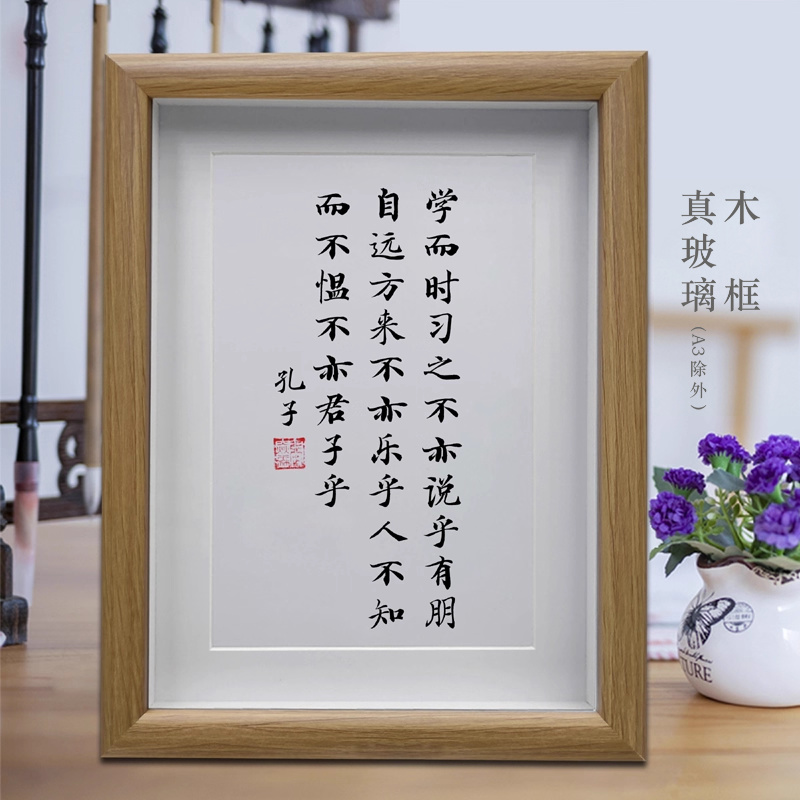 学而时习之不亦说乎有朋
自远方来不亦乐乎人不知
而不愠不亦君子乎
孔子
木框
真玻璃(A3除外)